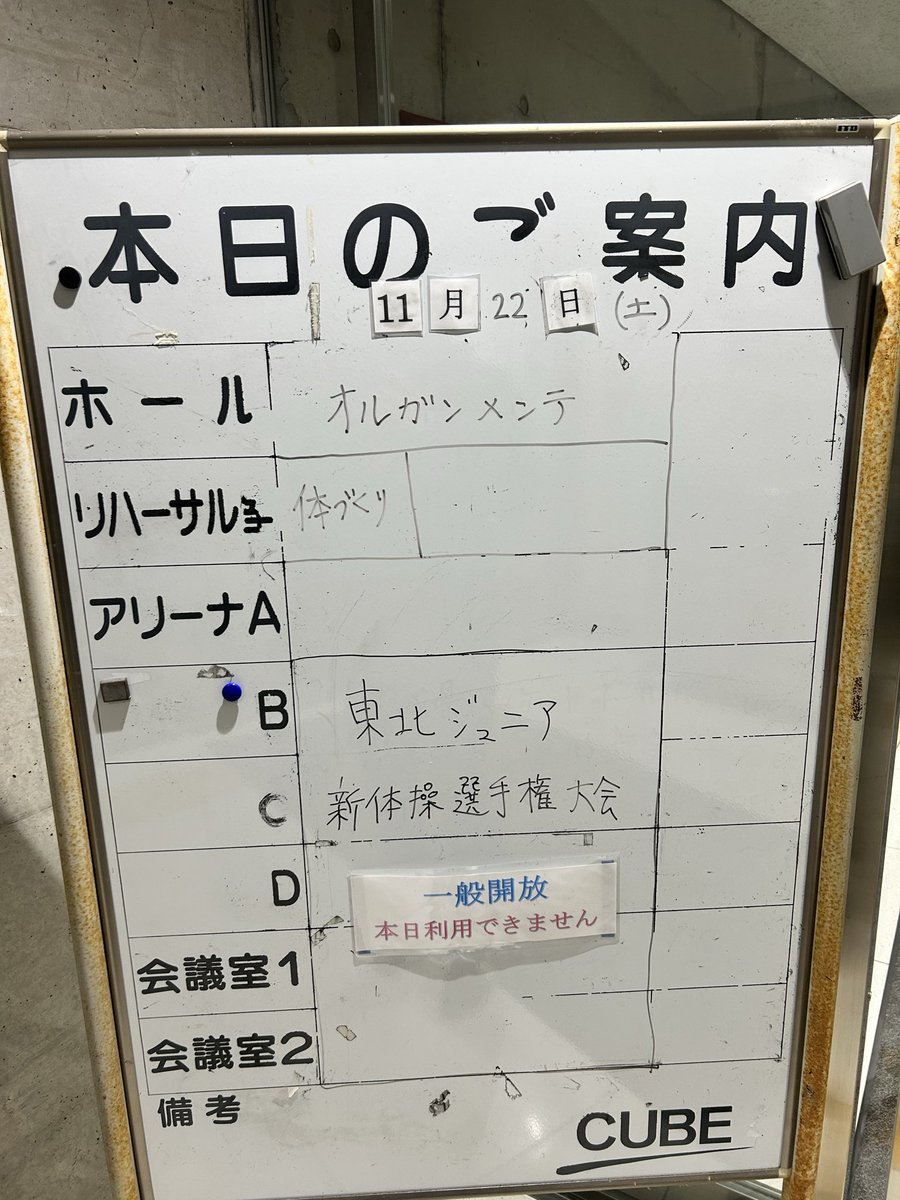 本日のご案内
11月22日(土)
ホール オルガンメンテ
リハーサル室 体づくり
アリーナA
B 東北ジュニア
C 新体操選手権大会
D
一般開放
本日利用できません
会議室1
会議室2
備考
CUBE